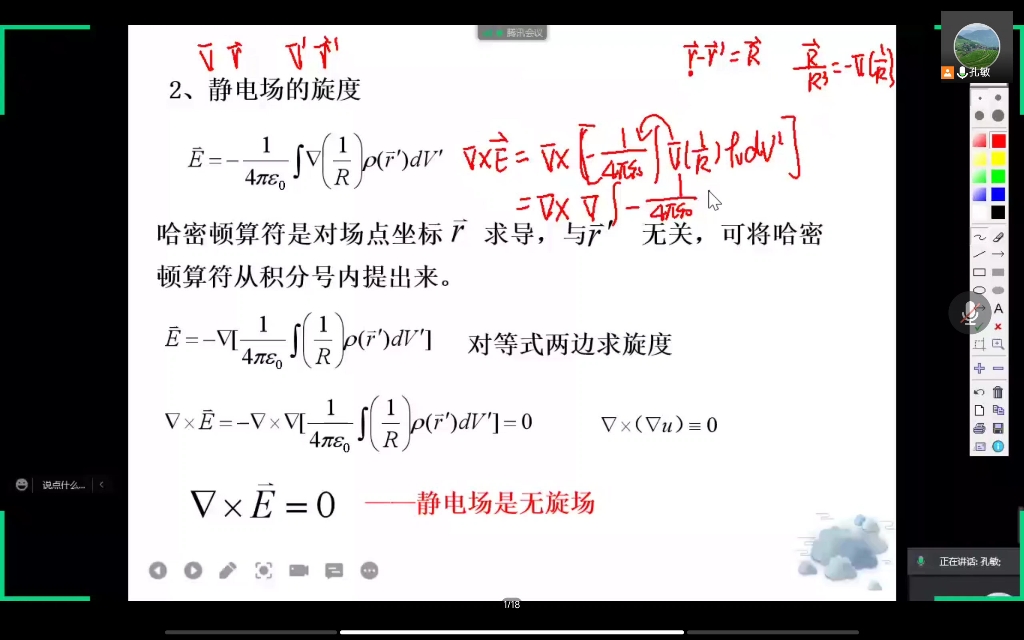 腾讯会议
∇ r⃗ ∇' r⃗'
r⃗-r⃗'=R⃗ R⃗/R³=-∇(1/R)
孔敏
2、静电场的旋度
E⃗=-1/(4πε₀)∫∇(1/R)ρ(r⃗')dV' ∇×E⃗=∇×[-1/(4πε₀)∫∇(1/R)ρv dV']
=∇×∇∫-1/(4πε₀)
哈密顿算符是对场点坐标 r⃗ 求导，与r⃗' 无关，可将哈密
顿算符从积分号内提出来。
E⃗=-∇[1/(4πε₀)∫(1/R)ρ(r⃗')dV'] 对等式两边求旋度
∇×E⃗=-∇×∇[1/(4πε₀)∫(1/R)ρ(r⃗')dV']=0 ∇×(∇u)≡0
说点什么...
∇×E⃗=0 ——静电场是无旋场
正在讲话: 孔敏;
1/18